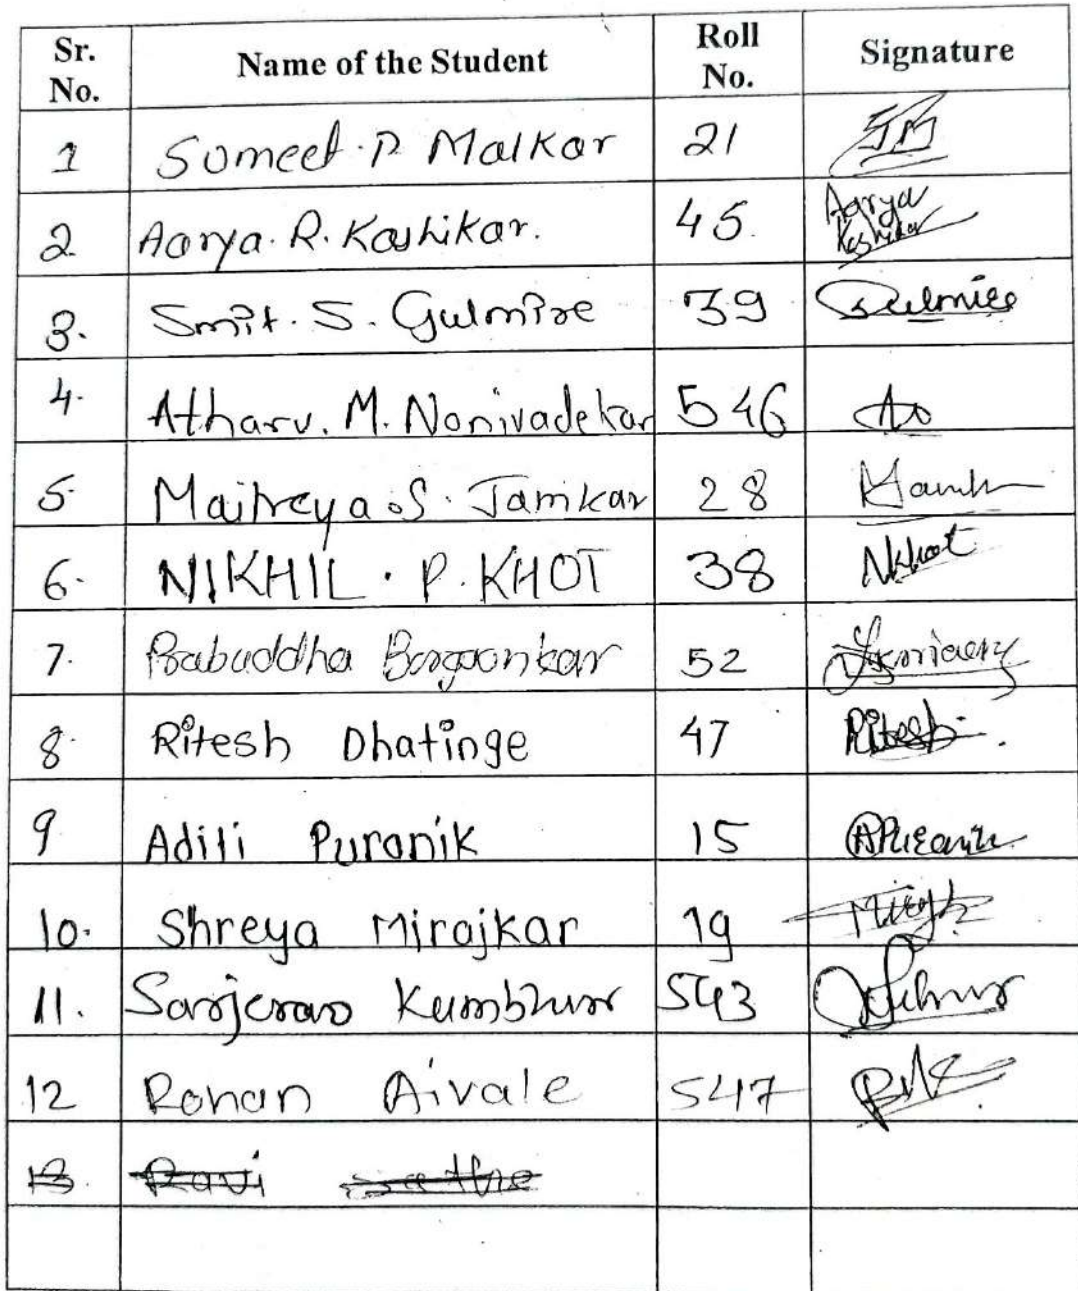 Sr. No. Name of the Student Roll No. Signature
1 Someet. P. Malkar 21
2 Aarya. R. Kashikar. 45. Aarya Kashikar
3. Smit. S. Gulmire 39 Gulmire
4. Atharv. M. Nanivadekar 546
5. Maitreya. S. Jamkar 28
6. NIKHIL. P. KHOT 38 Nkhot
7. Prabuddha Borgaonkar 52
8. Ritesh Dhatinge 47 Ritesh
9 Aditi Puranik 15 APuranik
10. Shreya Mirajkar 19
11. Sarjerao Kumbhar 543
12 Rohan Aivale 547
13. Ravi Sathe